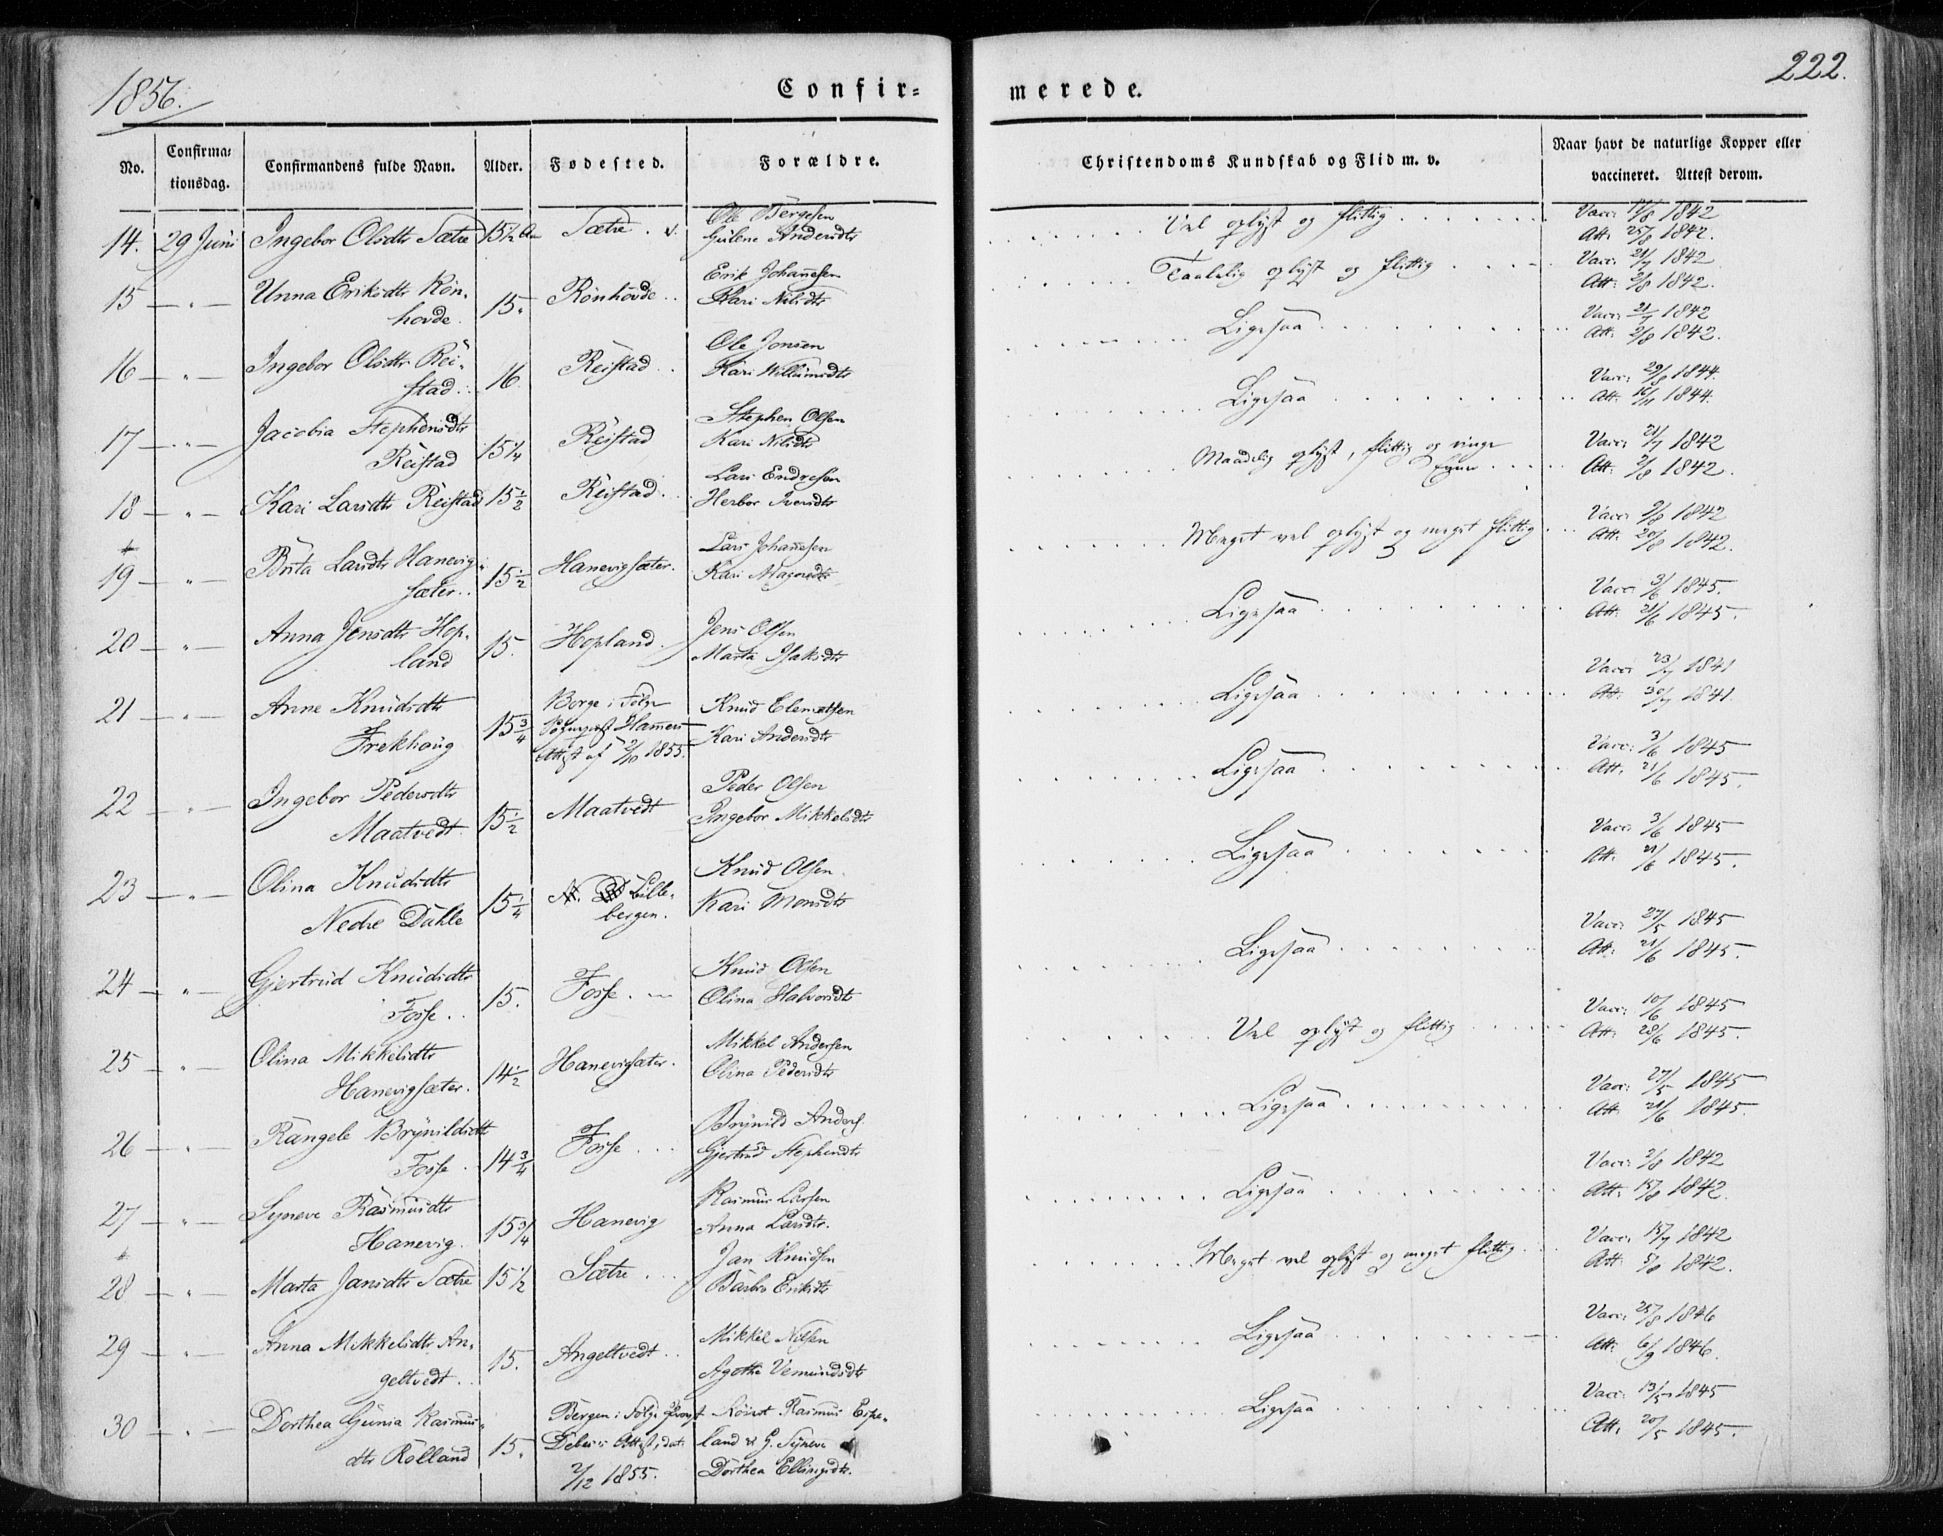 1856.
Confir-
merede.
222.
No.
Confirma-
tionsdag.
Confirmandens fulde Navn.
Alder.
Fødested.
Forældre.
Christendoms Kundskab og Flid m. v.
Naar havt de naturlige Kopper eller
vaccineret. Attest derom.
14. 29 Juni Ingebor Olsdtr Sætre 15½ Sætre Ole Bergesen
Gulene Andersdtr
Vel oplyst og flittig
Vacc: 1842
Att: 25/8 1842.
15 — " — Unna Eriksdtr Rön-
hovde. 15. Rönhovde Erik Johannesen
Kari Nilsdtr
Taalelig oplyst og flittig
Vacc: 21/7 1842
Att: 2/8 1842.
16 — " — Ingebor Olsdtr Rei-
stad. 16 Reistad Ole Jonsen
Kari Willumsdtr
Ligesaa
Vacc: 21/7 1842
Att: 2/8 1842.
17 — " — Jacobia Stephensdtr
Reistad 15¼ Reistad Stephen Olsen
Kari Nilsdtr
Ligesaa
Vacc: 29/8 1844.
Att: 16/11 1844.
18 — " — Kari Larsdtr Reistad 15½ Reistad. Lars Endresen
Herbor Iversdtr
Maadelig oplyst, flittig og ringe
Evner
Vacc: 21/7 1842
Att: 2/8 1842.
19 — " — Brita Larsdtr Hanevig-
sæter. 15½ Hanevigsæter. Lars Johannesen
Kari Magnesdtr
Meget vel oplyst og meget flittig
Vacc: 2/8 1842
Att: 20/8 1842.
20 — " — Anna Jensdtr Hop-
land 15. Hopland. Jens Olsen
Marta Isaksdtr
Ligesaa
Vacc: 3/6 1845.
Att: 21/6 1845.
21 — " — Anne Knudsdtr
Frekhaug 15¾ Borge i Følge
Hammers
Attest af 2/10 1855. Knud Clemetsen
Kari Andersdtr
Ligesaa
Vacc: 23/7 1841
Att: 30/7 1841.
22 — " — Ingebor Pedersdtr
Maatvedt 15½ Maatvedt Peder Olsen
Ingebor Mikkelsdtr
Ligesaa
Vacc: 3/6 1845
Att: 21/6 1845.
23 — " — Olina Knudsdtr
Nedre Dahle 15¼ Lille-
bergen. Knud Olsen.
Kari Monsdtr
Ligesaa
Vacc: 3/6 1845
Att: 21/6 1845.
24 — " — Gjertrud Knudsdtr
Fosse. 15. Fosse. Knud Olsen
Olina Halvorsdtr
Ligesaa
Vacc: 27/5 1845
Att: 21/6 1845.
25 — " — Olina Mikkelsdtr
Hanevigsæter. 14½ Hanevigsæter. Mikkel Andersen
Olina Pedersdtr
Vel oplyst og flittig
Vacc: 10/6 1845
Att: 28/6 1845.
26 — " — Rangele Brynildsdtr
Fosse. 14¾ Fosse Brynild Anders.
Gjertrud Stephensdtr
Ligesaa
Vacc: 27/5 1845
Att: 21/6 1845.
27 — " — Syneve Rasmusdtr
Hanevig. 15¾ Hanevig Rasmus Larsen
Anna Larsdtr.
Ligesaa
Vacc: 2/8 1842
Att: 15/8 1842.
28 — " — Marta Jansdtr Sætre 15½ Sætre Jan Knudsen
Barbro Eriksdtr
Meget vel oplyst og meget flittig
Vacc: 15/7 1842
Att: 5/8 1842.
29 — " — Anna Mikkelsdtr An-
geltvedt. 15. Angeltvedt Mikkel Nilsen
Agathe Vemundsdtr
Ligesaa
Vacc: 25/8 1846
Att: 6/9 1846.
30 — " — Dorthea Gunia Rasmus-
dtr Rolland 15. Bergen i Følge Provst
Attest, dat:
2/12 1855. Rasmus Espe-
land & G. Syneve
Dorthea Ellingsdtr.
Ligesaa
Vacc: 13/5 1845
Att: 20/5 1845.